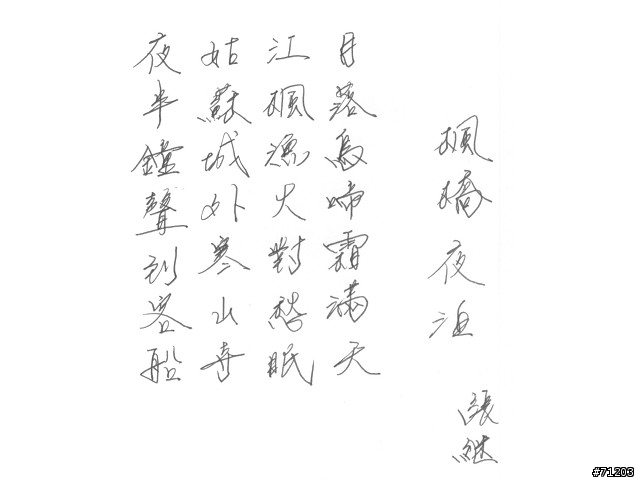 楓橋夜泊
張継
月落烏啼霜滿天
江楓漁火對愁眠
姑蘇城外寒山寺
夜半鐘聲到客船
#71203